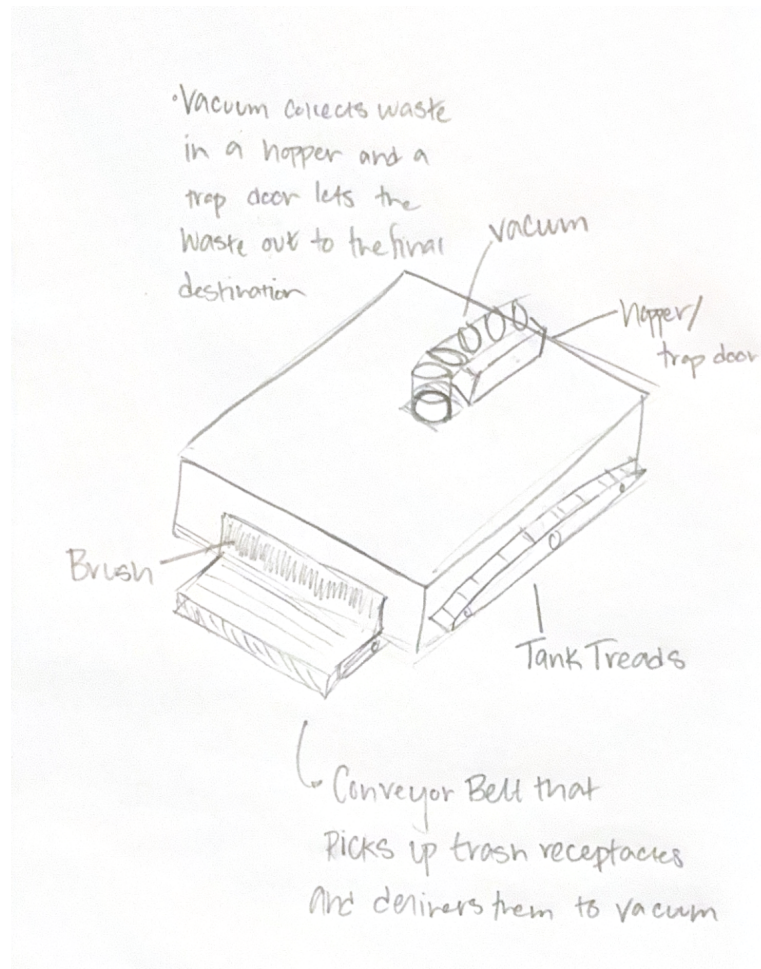 •Vacuum collects waste
in a hopper and a
trap door lets the
waste out to the final
destination
vacuum
hopper/
trap door
Brush
Tank Treads
Conveyor Belt that
Picks up trash receptacles
and delivers them to vacuum